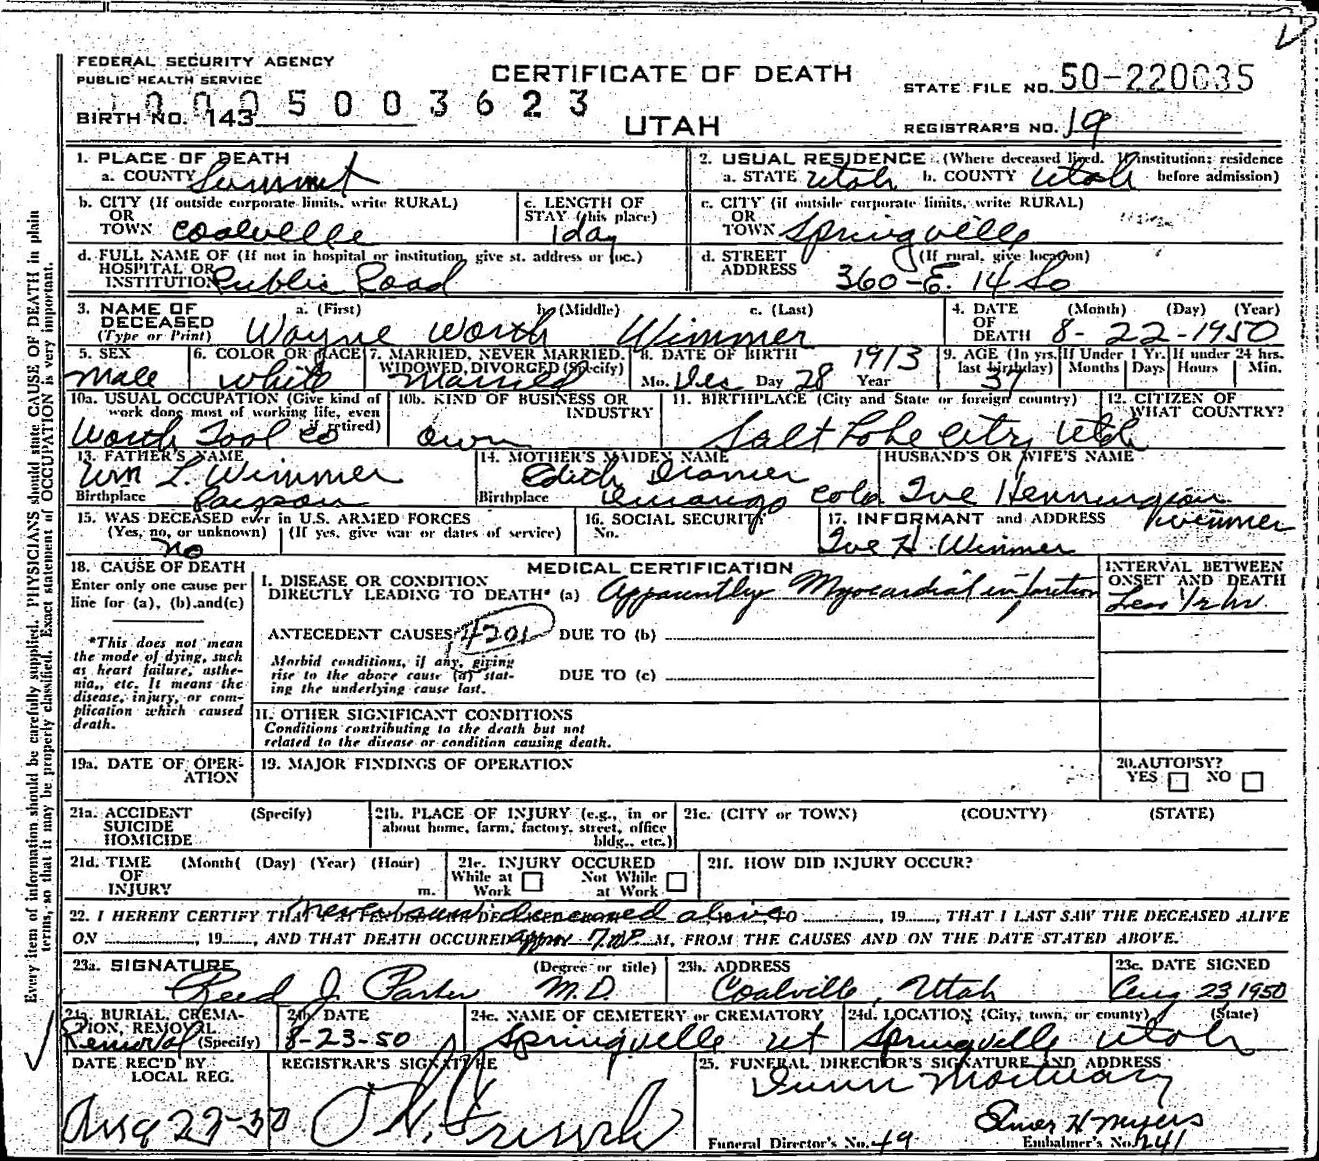 FEDERAL SECURITY AGENCY
PUBLIC HEALTH SERVICE
CERTIFICATE OF DEATH
STATE FILE NO. 50-220035
0005003623
BIRTH NO. 143
UTAH
REGISTRAR'S NO. 19
Every item of information should be carefully supplied. PHYSICIANS should state CAUSE OF DEATH in plain
terms, so that it may be properly classified. Exact statement of OCCUPATION is very important.
1. PLACE OF DEATH
a. COUNTY Summit
2. USUAL RESIDENCE (Where deceased lived. If institution; residence
a. STATE Utah b. COUNTY Utah before admission)
b. CITY (If outside corporate limits, write RURAL)
OR
TOWN Coalville
c. LENGTH OF
STAY (this place)
1 day
c. CITY (if outside corporate limits, write RURAL)
OR
TOWN Springville
d. FULL NAME OF (If not in hospital or institution, give st. address or loc.)
HOSPITAL OR
INSTITUTION Public Road
d. STREET (If rural, give location)
ADDRESS 360-E. 14 So
3. NAME OF a. (First) b. (Middle) c. (Last)
DECEASED
(Type or Print) Wayne Worth Wimmer
4. DATE (Month) (Day) (Year)
OF
DEATH 8-22-1950
5. SEX
Male
6. COLOR OR RACE
White
7. MARRIED, NEVER MARRIED,
WIDOWED, DIVORCED (Specify)
Married
8. DATE OF BIRTH 1913
Mo. Dec Day 28 Year
9. AGE (In yrs. last birthday) 37
If Under 1 Yr. Months Days
If under 24 hrs. Hours Min.
10a. USUAL OCCUPATION (Give kind of
work done most of working life, even
if retired)
Worth Tool Co
10b. KIND OF BUSINESS OR
INDUSTRY
Own
11. BIRTHPLACE (City and State or foreign country)
Salt Lake City, Utah
12. CITIZEN OF
WHAT COUNTRY?
13. FATHER'S NAME
Wm L. Wimmer
Birthplace Payson
14. MOTHER'S MAIDEN NAME
Edith
Birthplace Durango Colo
HUSBAND'S OR WIFE'S NAME
Wimmer
15. WAS DECEASED ever in U.S. ARMED FORCES
(Yes, no, or unknown) (If yes, give war or dates of service)
no
16. SOCIAL SECURITY
No.
17. INFORMANT and ADDRESS
H. Wimmer
18. CAUSE OF DEATH
Enter only one cause per
line for (a), (b) and (c)
*This does not mean
the mode of dying, such
as heart failure, asthe-
nia, etc. It means the
disease, injury, or com-
plication which caused
death.
MEDICAL CERTIFICATION
I. DISEASE OR CONDITION
DIRECTLY LEADING TO DEATH* (a) Apparently Myocardial infarction
INTERVAL BETWEEN
ONSET AND DEATH
Less 1/2 hr.
ANTECEDENT CAUSES 4201 DUE TO (b)
Morbid conditions, if any, giving
rise to the above cause (a) stat-
ing the underlying cause last.
DUE TO (c)
II. OTHER SIGNIFICANT CONDITIONS
Conditions contributing to the death but not
related to the disease or condition causing death.
19a. DATE OF OPER-
ATION
19. MAJOR FINDINGS OF OPERATION
20. AUTOPSY?
YES NO
21a. ACCIDENT (Specify)
SUICIDE
HOMICIDE
21b. PLACE OF INJURY (e.g., in or
about home, farm, factory, street, office
bldg., etc.)
21c. (CITY or TOWN) (COUNTY) (STATE)
21d. TIME (Month( (Day) (Year) (Hour)
OF
INJURY m.
21e. INJURY OCCURED
While at Work Not While at Work
21f. HOW DID INJURY OCCUR?
22. I HEREBY CERTIFY THAT never saw deceased alive TO , 19 , THAT I LAST SAW THE DECEASED ALIVE
ON , 19 , AND THAT DEATH OCCURED approx 7 M. FROM THE CAUSES AND ON THE DATE STATED ABOVE.
23a. SIGNATURE (Degree or title)
Reed J. Parker M.D.
23b. ADDRESS
Coalville, Utah
23c. DATE SIGNED
Aug 23 1950
24a. BURIAL, CREMA-
TION, REMOVAL
Removal (Specify)
24b DATE
8-23-50
24c. NAME OF CEMETERY or CREMATORY
Springville Ut
24d. LOCATION (City, town, or county) (State)
Springville Utah
DATE REC'D BY
LOCAL REG.
REGISTRAR'S SIGNATURE
25. FUNERAL DIRECTOR'S SIGNATURE AND ADDRESS
Mortuary
Elmer H Myers
Funeral Director's No. 49 Embalmer's No. 241